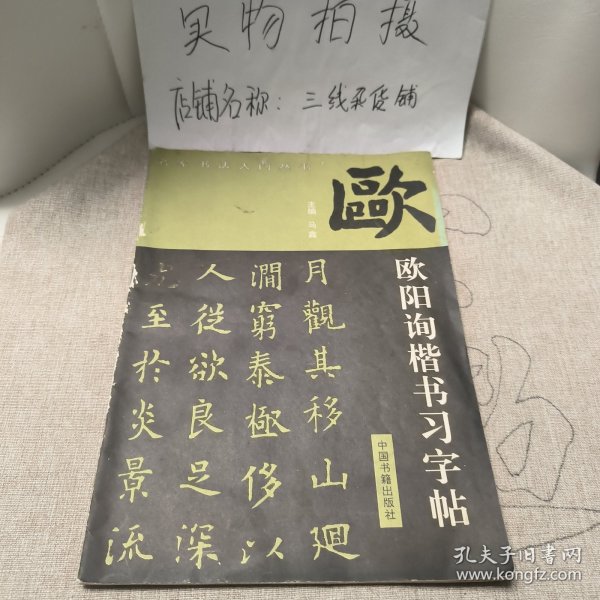 实物拍摄
店铺名称：三线杂货铺
主编 马鑫
歐
欧阳询楷书习字帖
中国书籍出版社
月觀其移山廻
澗窮泰極侈以
人從欲良足深
至於炎景流
孔夫子旧书网
www.kongfz.com